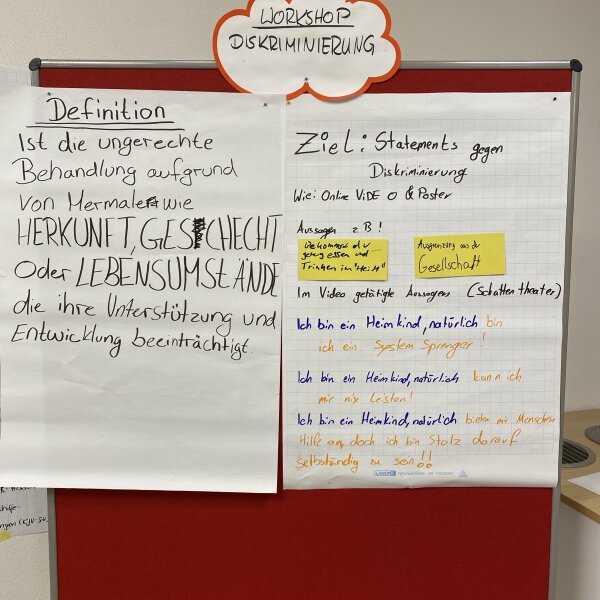 WORKSHOP
DISKRIMINIERUNG
Definition
Ist die ungerechte
Behandlung aufgrund
von Mermale wie
HERKUNFT, GESCHECHT
oder LEBENSUMSTÄNDE
die ihre Unterstützung und
Entwicklung beeinträchtigt.
Ziel: Statements gegen
Diskriminierung
Wie: Online ViDEO & Poster
Aussagen z.B!
Bekommst du
genug essen und
Trinken im "Heim"
Ausgrenzung aus der
Gesellschaft
Im Video getätigte Aussagen (Schattentheater)
Ich bin ein Heimkind, natürlich bin
ich ein System Sprenger!
Ich bin ein Heimkind, natürlich kann ich
mir nix Leisten!
Ich bin ein Heimkind, natürlich bieten mir Menschen
Hilfe an, doch ich bin Stolz darauf
selbständig zu sein!!